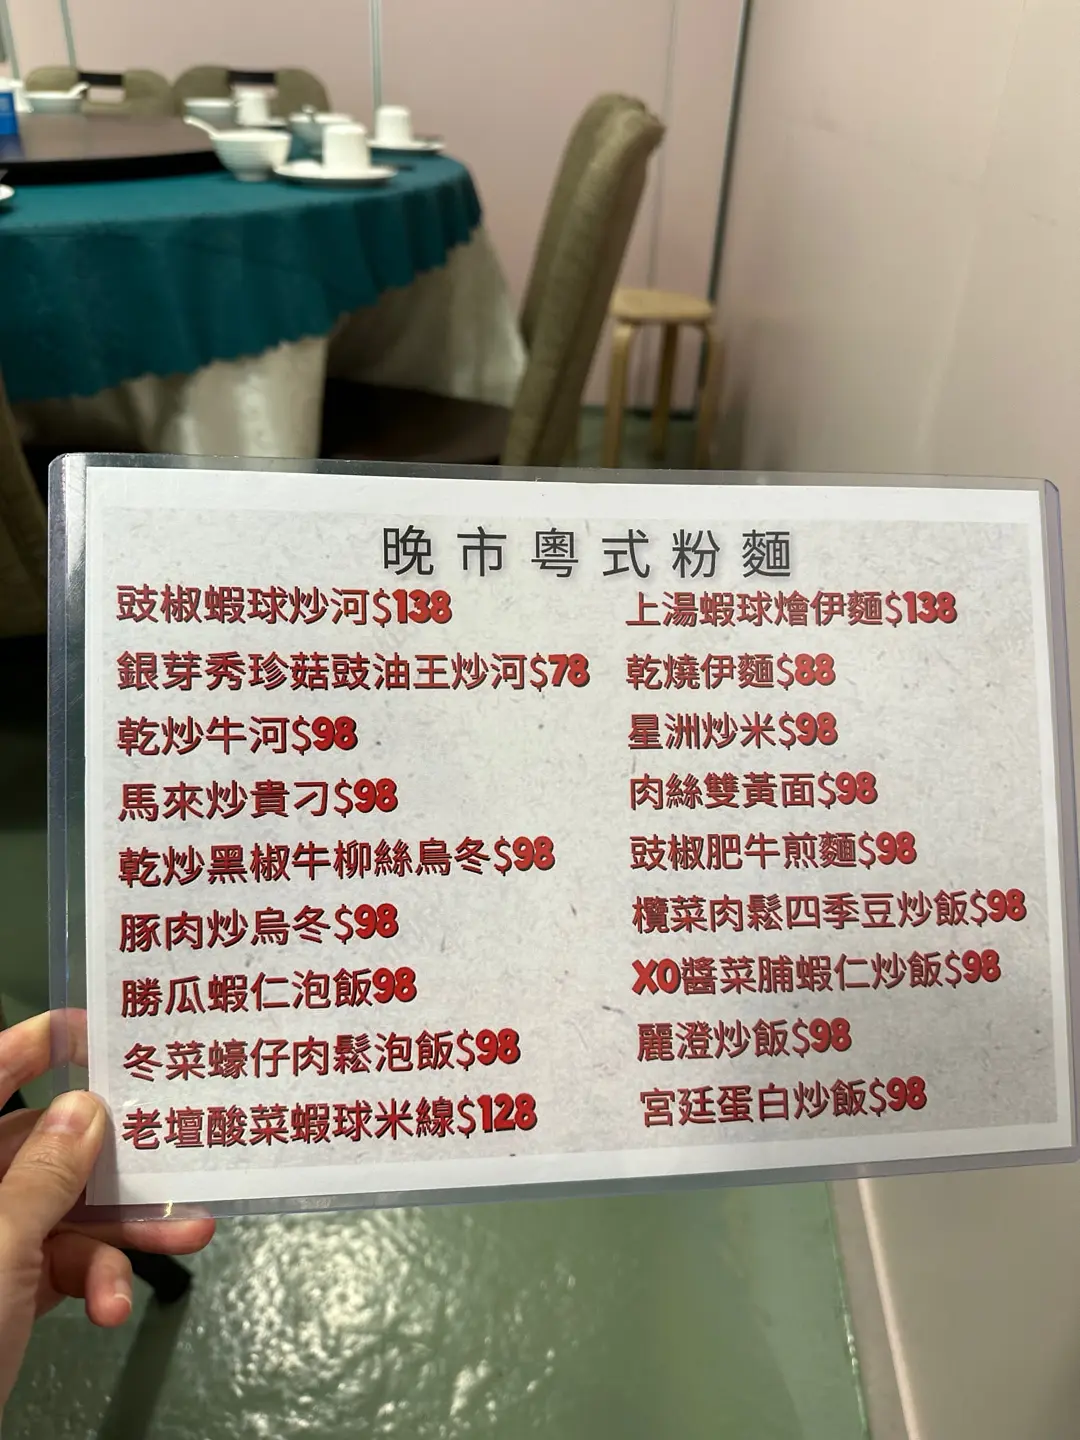 晚市粵式粉麵
豉椒蝦球炒河$138
銀芽秀珍菇豉油王炒河$78
乾炒牛河$98
馬來炒貴刁$98
乾炒黑椒牛柳絲烏冬$98
豚肉炒烏冬$98
勝瓜蝦仁泡飯98
冬菜蠔仔肉鬆泡飯$98
老壇酸菜蝦球米線$128
上湯蝦球燴伊麵$138
乾燒伊麵$88
星洲炒米$98
肉絲雙黃面$98
豉椒肥牛煎麵$98
欖菜肉鬆四季豆炒飯$98
XO醬菜脯蝦仁炒飯$98
麗澄炒飯$98
宮廷蛋白炒飯$98